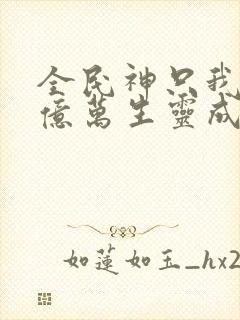 全民神只我
億萬生靈成
如蓮如玉_hx2